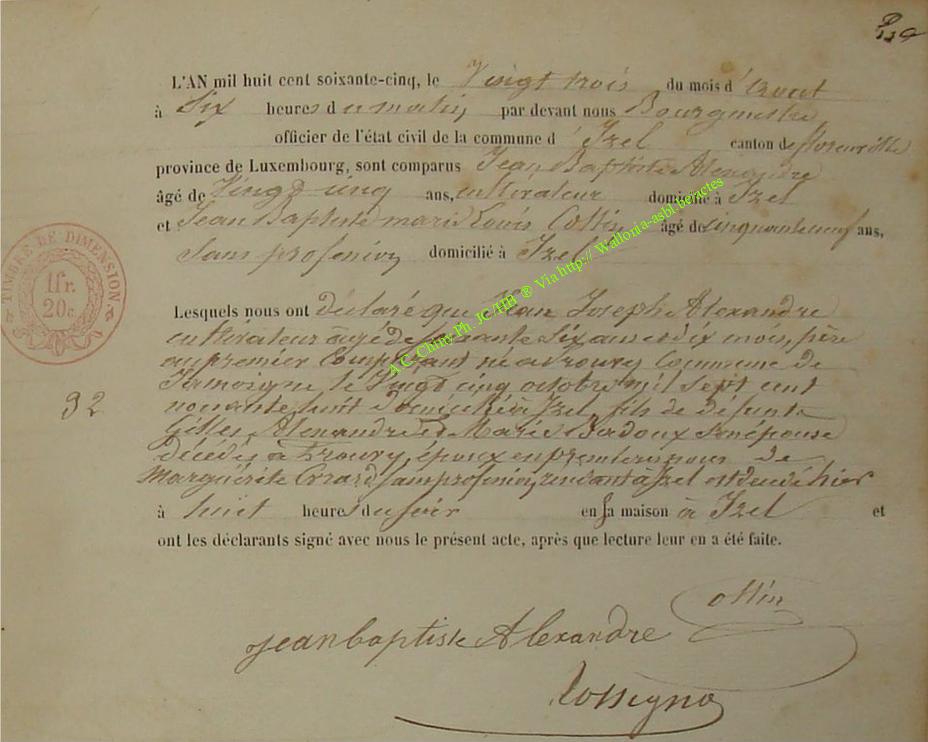 L'AN mil huit cent soixante-cinq, le Vingt trois du mois d'aout
à Six heures du matin par devant nous Bourgmestre
officier de l'état civil de la commune d'Izel canton de florenville
province de Luxembourg, sont comparus Jean Baptiste Alexandre
âgé de Vingt cinq ans, cultivateur domicilié à Izel
et Jean Baptiste marie Louis Collin âgé de cinquante neuf ans,
Sans profession domicilié à Izel
TIMBRE DE DIMENSION
1 fr.
20 c.
Lesquels nous ont déclaré que Jean Joseph Alexandre
cultivateur âgé de soixante Six ans et dix mois, père
au premier Comparant né a frouvy Commune de
Jamoigne le Vingt cinq octobre mil sept cent
92
nonante huit domicilié à Izel, fils de défunts
Gilles Alexandre et Marie Badoux son épouse
décédés à Frouvy, époux en premières noces de
Marguérite Evrard sans profession, résidant à Izel est décédé hier
à huit heures du soir en sa maison à Izel et
ont les déclarants signé avec nous le présent acte, après que lecture leur en a été faite.
Collin
jean baptiste Alexandre
Rossignon
A C Chiny Ph. JC /HB ® Via http:// Wallonia-asbl.be/actes